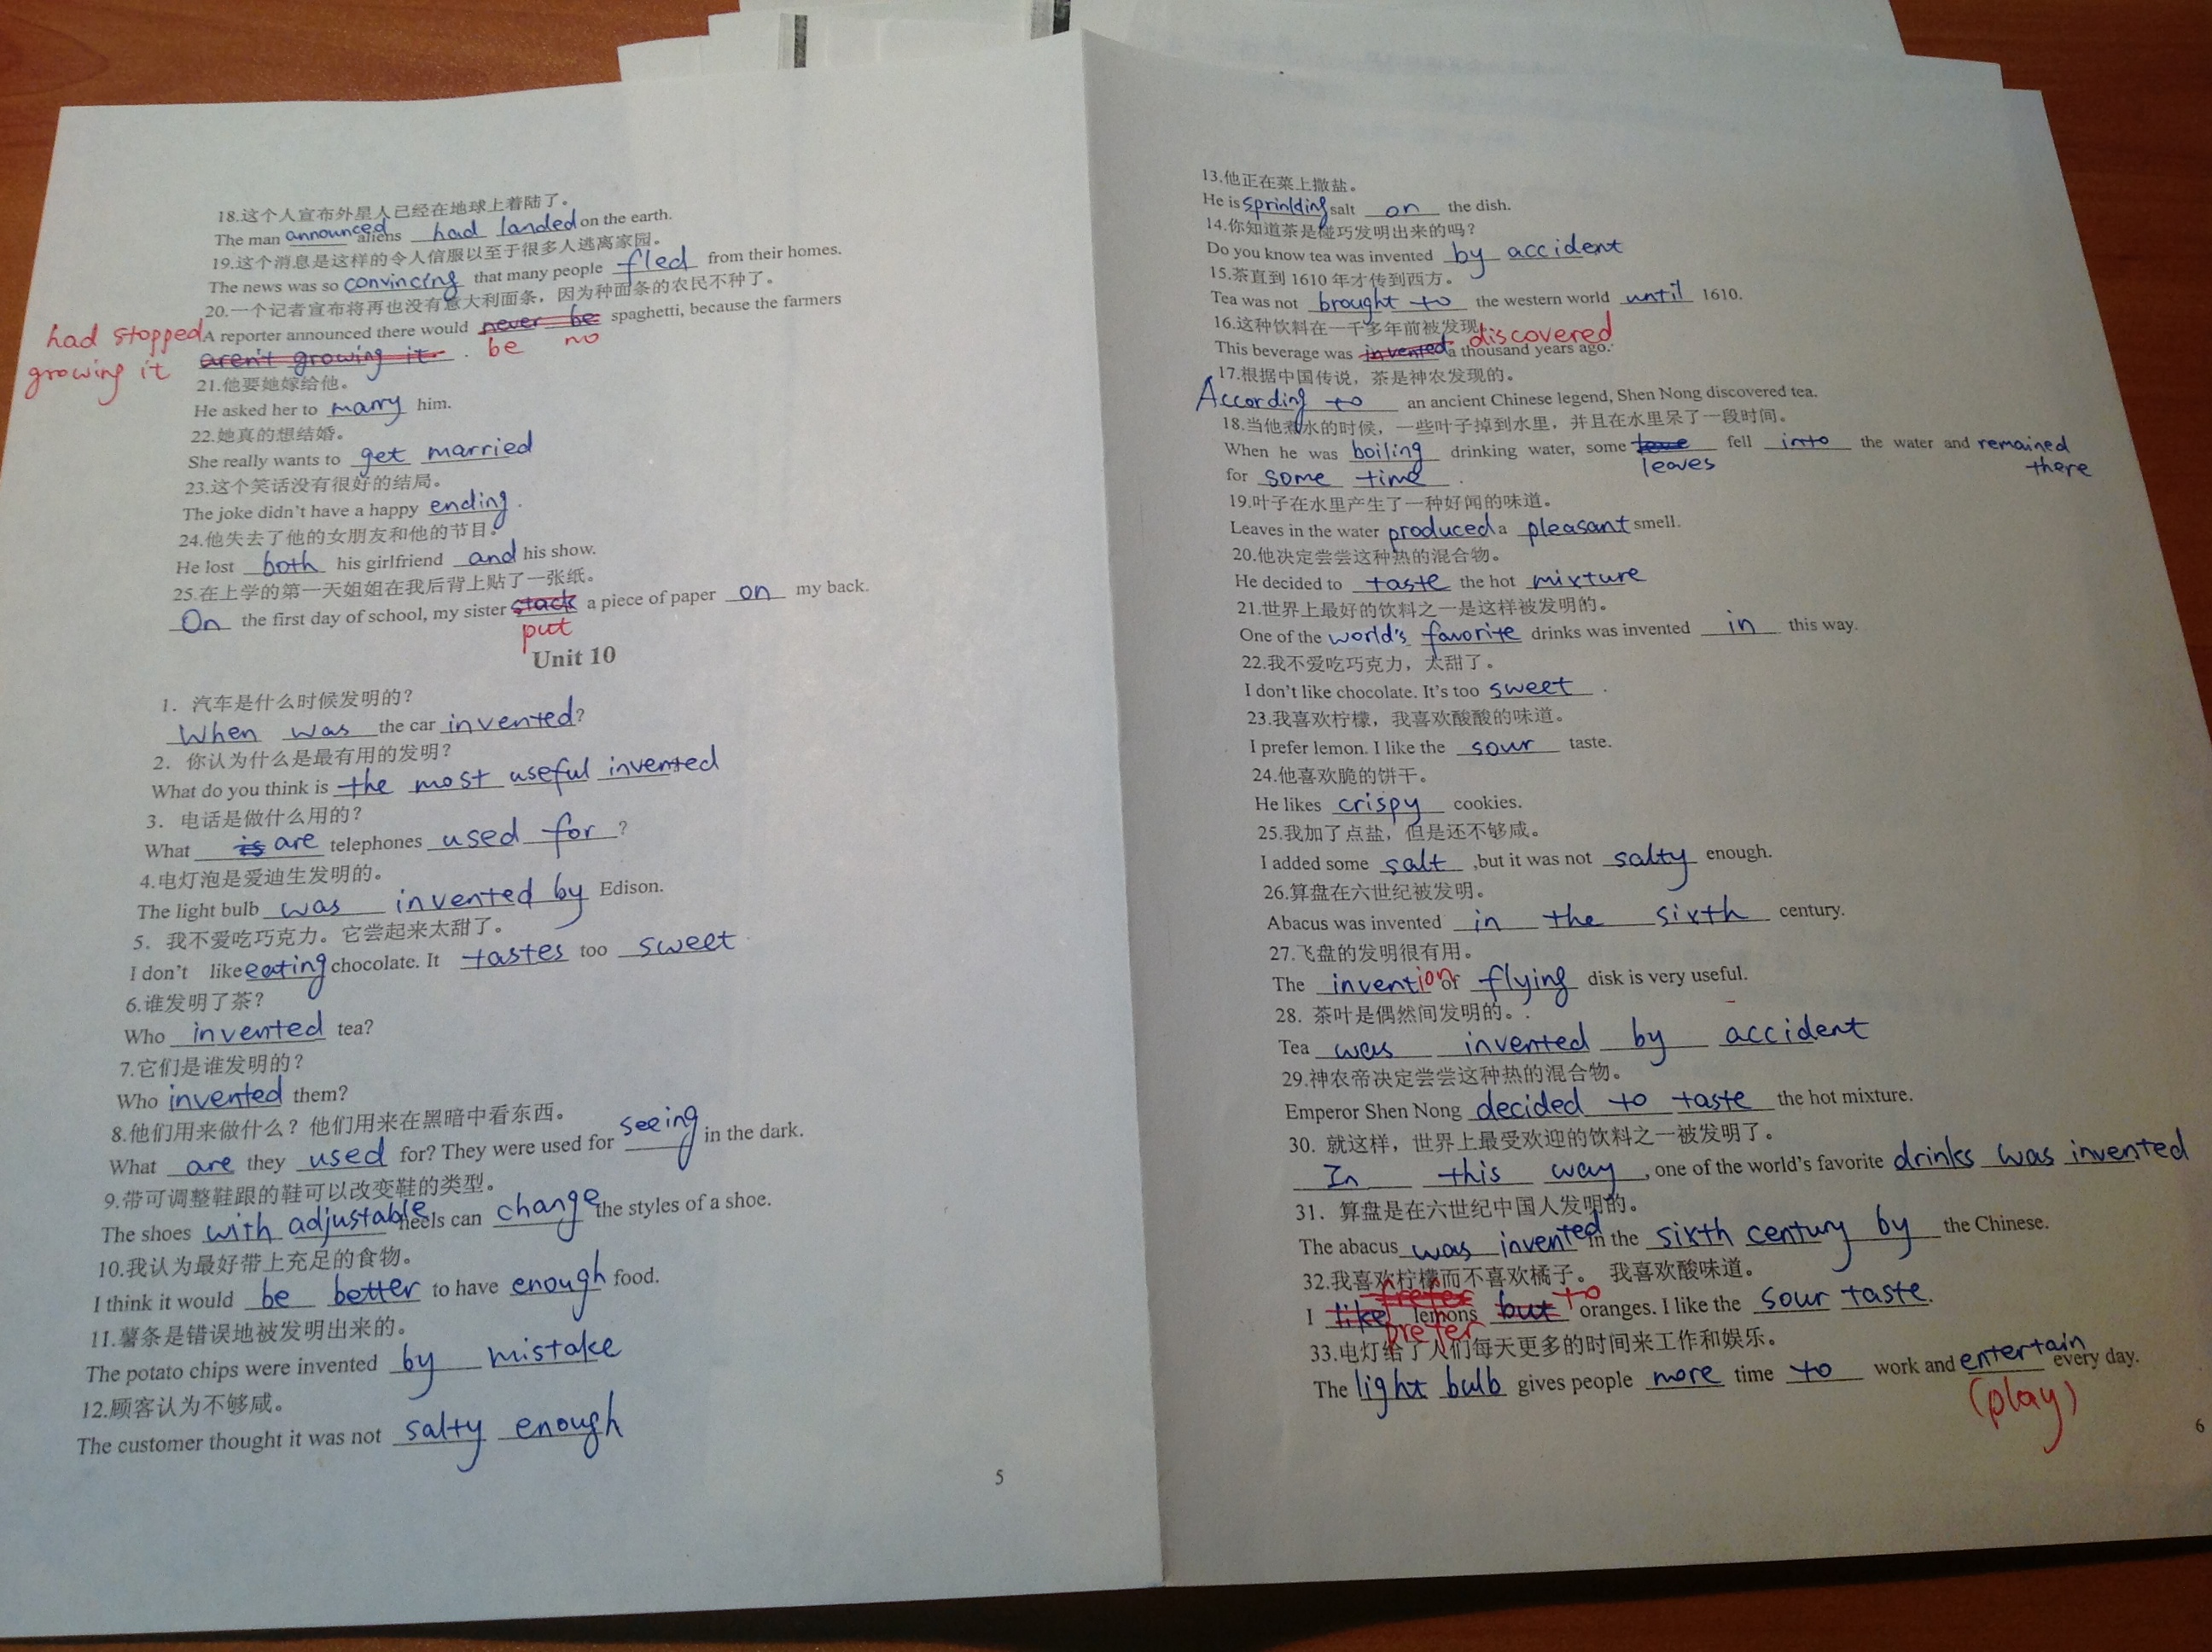 18.这个人宣布外星人已经在地球上着陆了。
The man announced aliens had landed on the earth.
19.这个消息是这样的令人信服以至于很多人逃离家园。
The news was so convincing that many people fled from their homes.
20.一个记者宣布将再也没有意大利面条，因为种面条的农民不种了。
had stopped A reporter announced there would never be spaghetti, because the farmers
growing it aren't growing it . be no
21.他要她嫁给他。
He asked her to marry him.
22.她真的想结婚。
She really wants to get married
23.这个笑话没有很好的结局。
The joke didn't have a happy ending.
24.他失去了他的女朋友和他的节目。
He lost both his girlfriend and his show.
25.在上学的第一天姐姐在我后背上贴了一张纸。
On the first day of school, my sister stack a piece of paper on my back.
put
Unit 10
1. 汽车是什么时候发明的？
When was the car invented?
2. 你认为什么是最有用的发明？
What do you think is the most useful invented
3. 电话是做什么用的？
What is are telephones used for ?
4.电灯泡是爱迪生发明的。
The light bulb was invented by Edison.
5. 我不爱吃巧克力。它尝起来太甜了。
I don't like eating chocolate. It tastes too sweet
6.谁发明了茶？
Who invented tea?
7.它们是谁发明的？
Who invented them?
8.他们用来做什么？他们用来在黑暗中看东西。
What are they used for? They were used for seeing in the dark.
9.带可调整鞋跟的鞋可以改变鞋的类型。
The shoes with adjustable heels can change the styles of a shoe.
10.我认为最好带上充足的食物。
I think it would be better to have enough food.
11.薯条是错误地被发明出来的。
The potato chips were invented by mistake
12.顾客认为不够咸。
The customer thought it was not salty enough
5
13.他正在菜上撒盐。
He is sprinlding salt on the dish.
14.你知道茶是碰巧发明出来的吗？
Do you know tea was invented by accident
15.茶直到 1610 年才传到西方。
Tea was not brought to the western world until 1610.
16.这种饮料在一千多年前被发现. discovered
This beverage was invented a thousand years ago.
17.根据中国传说，茶是神农发现的。
According to an ancient Chinese legend, Shen Nong discovered tea.
18.当他煮水的时候，一些叶子掉到水里，并且在水里呆了一段时间。
When he was boiling drinking water, some fell into the water and remained
for some time . leaves there
19.叶子在水里产生了一种好闻的味道。
Leaves in the water produced a pleasant smell.
20.他决定尝尝这种热的混合物。
He decided to taste the hot mixture
21.世界上最好的饮料之一是这样被发明的。
One of the world's favorite drinks was invented in this way.
22.我不爱吃巧克力，太甜了。
I don't like chocolate. It's too sweet .
23.我喜欢柠檬，我喜欢酸酸的味道。
I prefer lemon. I like the sour taste.
24.他喜欢脆的饼干。
He likes crispy cookies.
25.我加了点盐，但是还不够咸。
I added some salt ,but it was not salty enough.
26.算盘在六世纪被发明。
Abacus was invented in the sixth century.
27.飞盘的发明很有用。
The invention of flying disk is very useful.
28. 茶叶是偶然间发明的。.
Tea was invented by accident
29.神农帝决定尝尝这种热的混合物。
Emperor Shen Nong decided to taste the hot mixture.
30. 就这样，世界上最受欢迎的饮料之一被发明了。
In this way , one of the world's favorite drinks was invented
31. 算盘是在六世纪中国人发明的。
The abacus was invented in the sixth century by the Chinese.
32.我喜欢柠檬而不喜欢橘子。 我喜欢酸味道。
I like prefer lemons but to oranges. I like the sour taste.
33.电灯给了人们每天更多的时间来工作和娱乐。
The light bulb gives people more time to work and entertain every day.
(play)
6